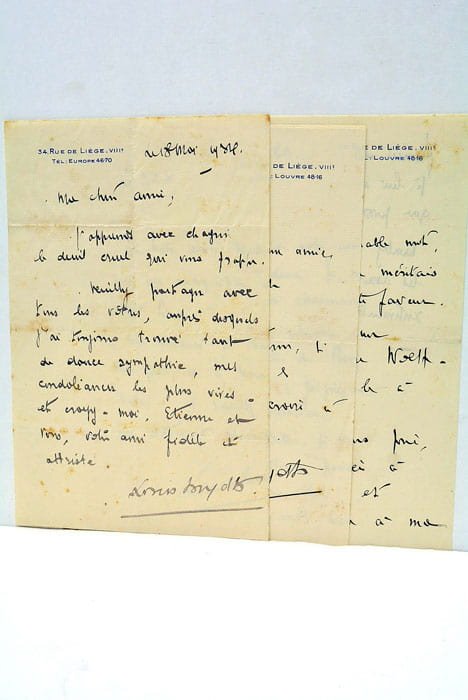 34. RUE DE LIÉGE. VIIIᵉ
TEL: EUROPE 4670
le 18 Mai 1934.
Ma chère amie,
J'apprends avec chagrin
le deuil cruel qui vous frappe.
Veuillez partager avec
tous les vôtres, auprès desquels
j'ai toujours trouvé tant
de douce sympathie, mes
condoléances les plus vives
et croyez-moi, Etienne et
vous, votre ami fidèle et
attristé
Louis Beydts
DE LIÉGE. VIIIᵉ
LOUVRE 4816
amie,
à
E DE LIÉGE. VIIIᵉ
L: LOUVRE 4816
able mot,
méritais
faveur.
Wolff-
à
à
et
à ma